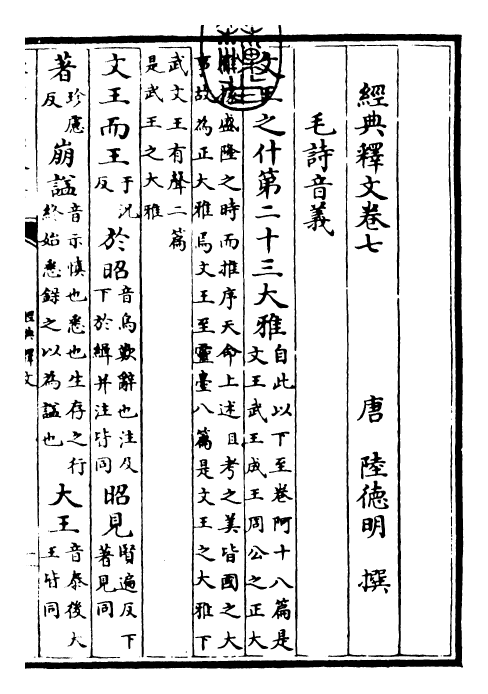 經典釋文卷七 唐 陸德明 撰
毛詩音義
文王之什第二十三大雅 自此以下至卷阿十八篇是文王武王成王周公之正大
據盛隆之時而推序天命上述且考之美皆國之大事故為正大雅焉文王至靈臺八篇是文王之大雅下
武文王有聲二篇是武王之大雅
文王而王 于況反 於昭 音烏歎辭也注及下於緝并注皆同 昭見 賢遍反下著見同
著 珍慮反 崩謚 音示慎也悉也生存之行終始悉錄之以為謚也 大王 音泰後大王皆同
經典釋文